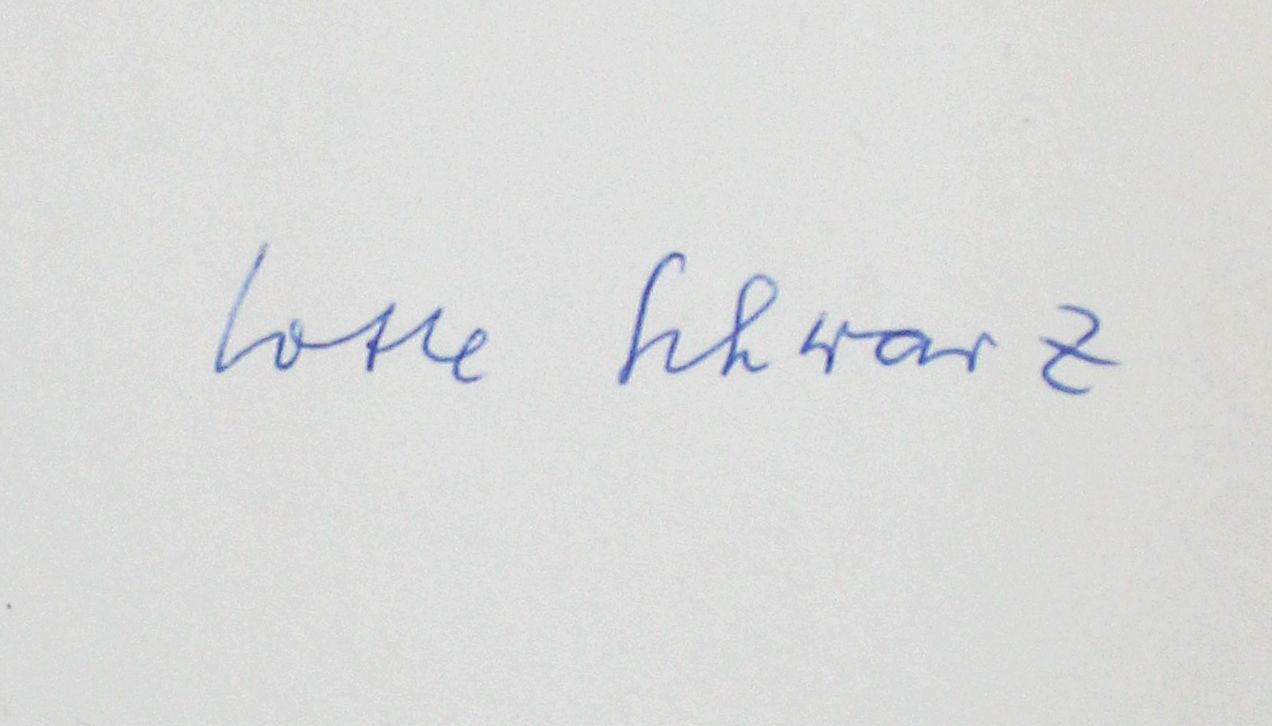 Lotte Schwarz